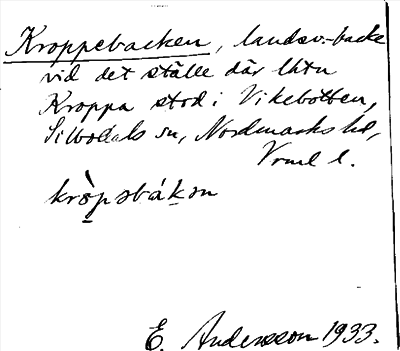 Kroppebacken, landsv.-backe
vid det ställe där lhtn
Kroppa stod i Vikebotten,
Silbodals sn, Nordmarks hd,
Vrml l.
kròpsbákσn
E. Andersson 1933.